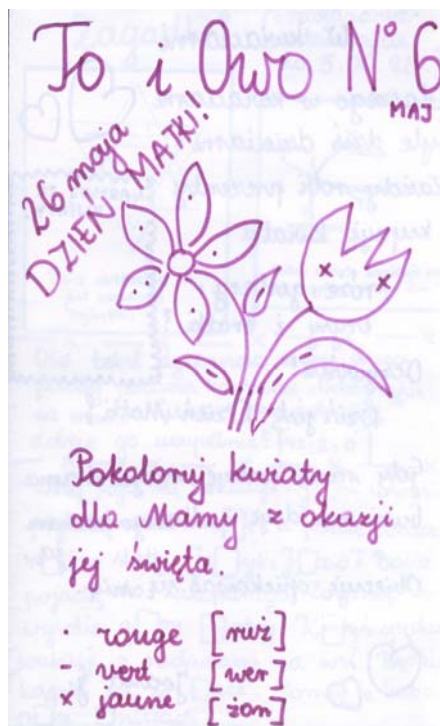 To i Owo N° 6
MAJ
26 maja
DZIEŃ MATKI!
Pokoloruj kwiaty
dla Mamy z okazji
jej święta.
· rouge [ruż]
- vert [wer]
x jaune [żon]